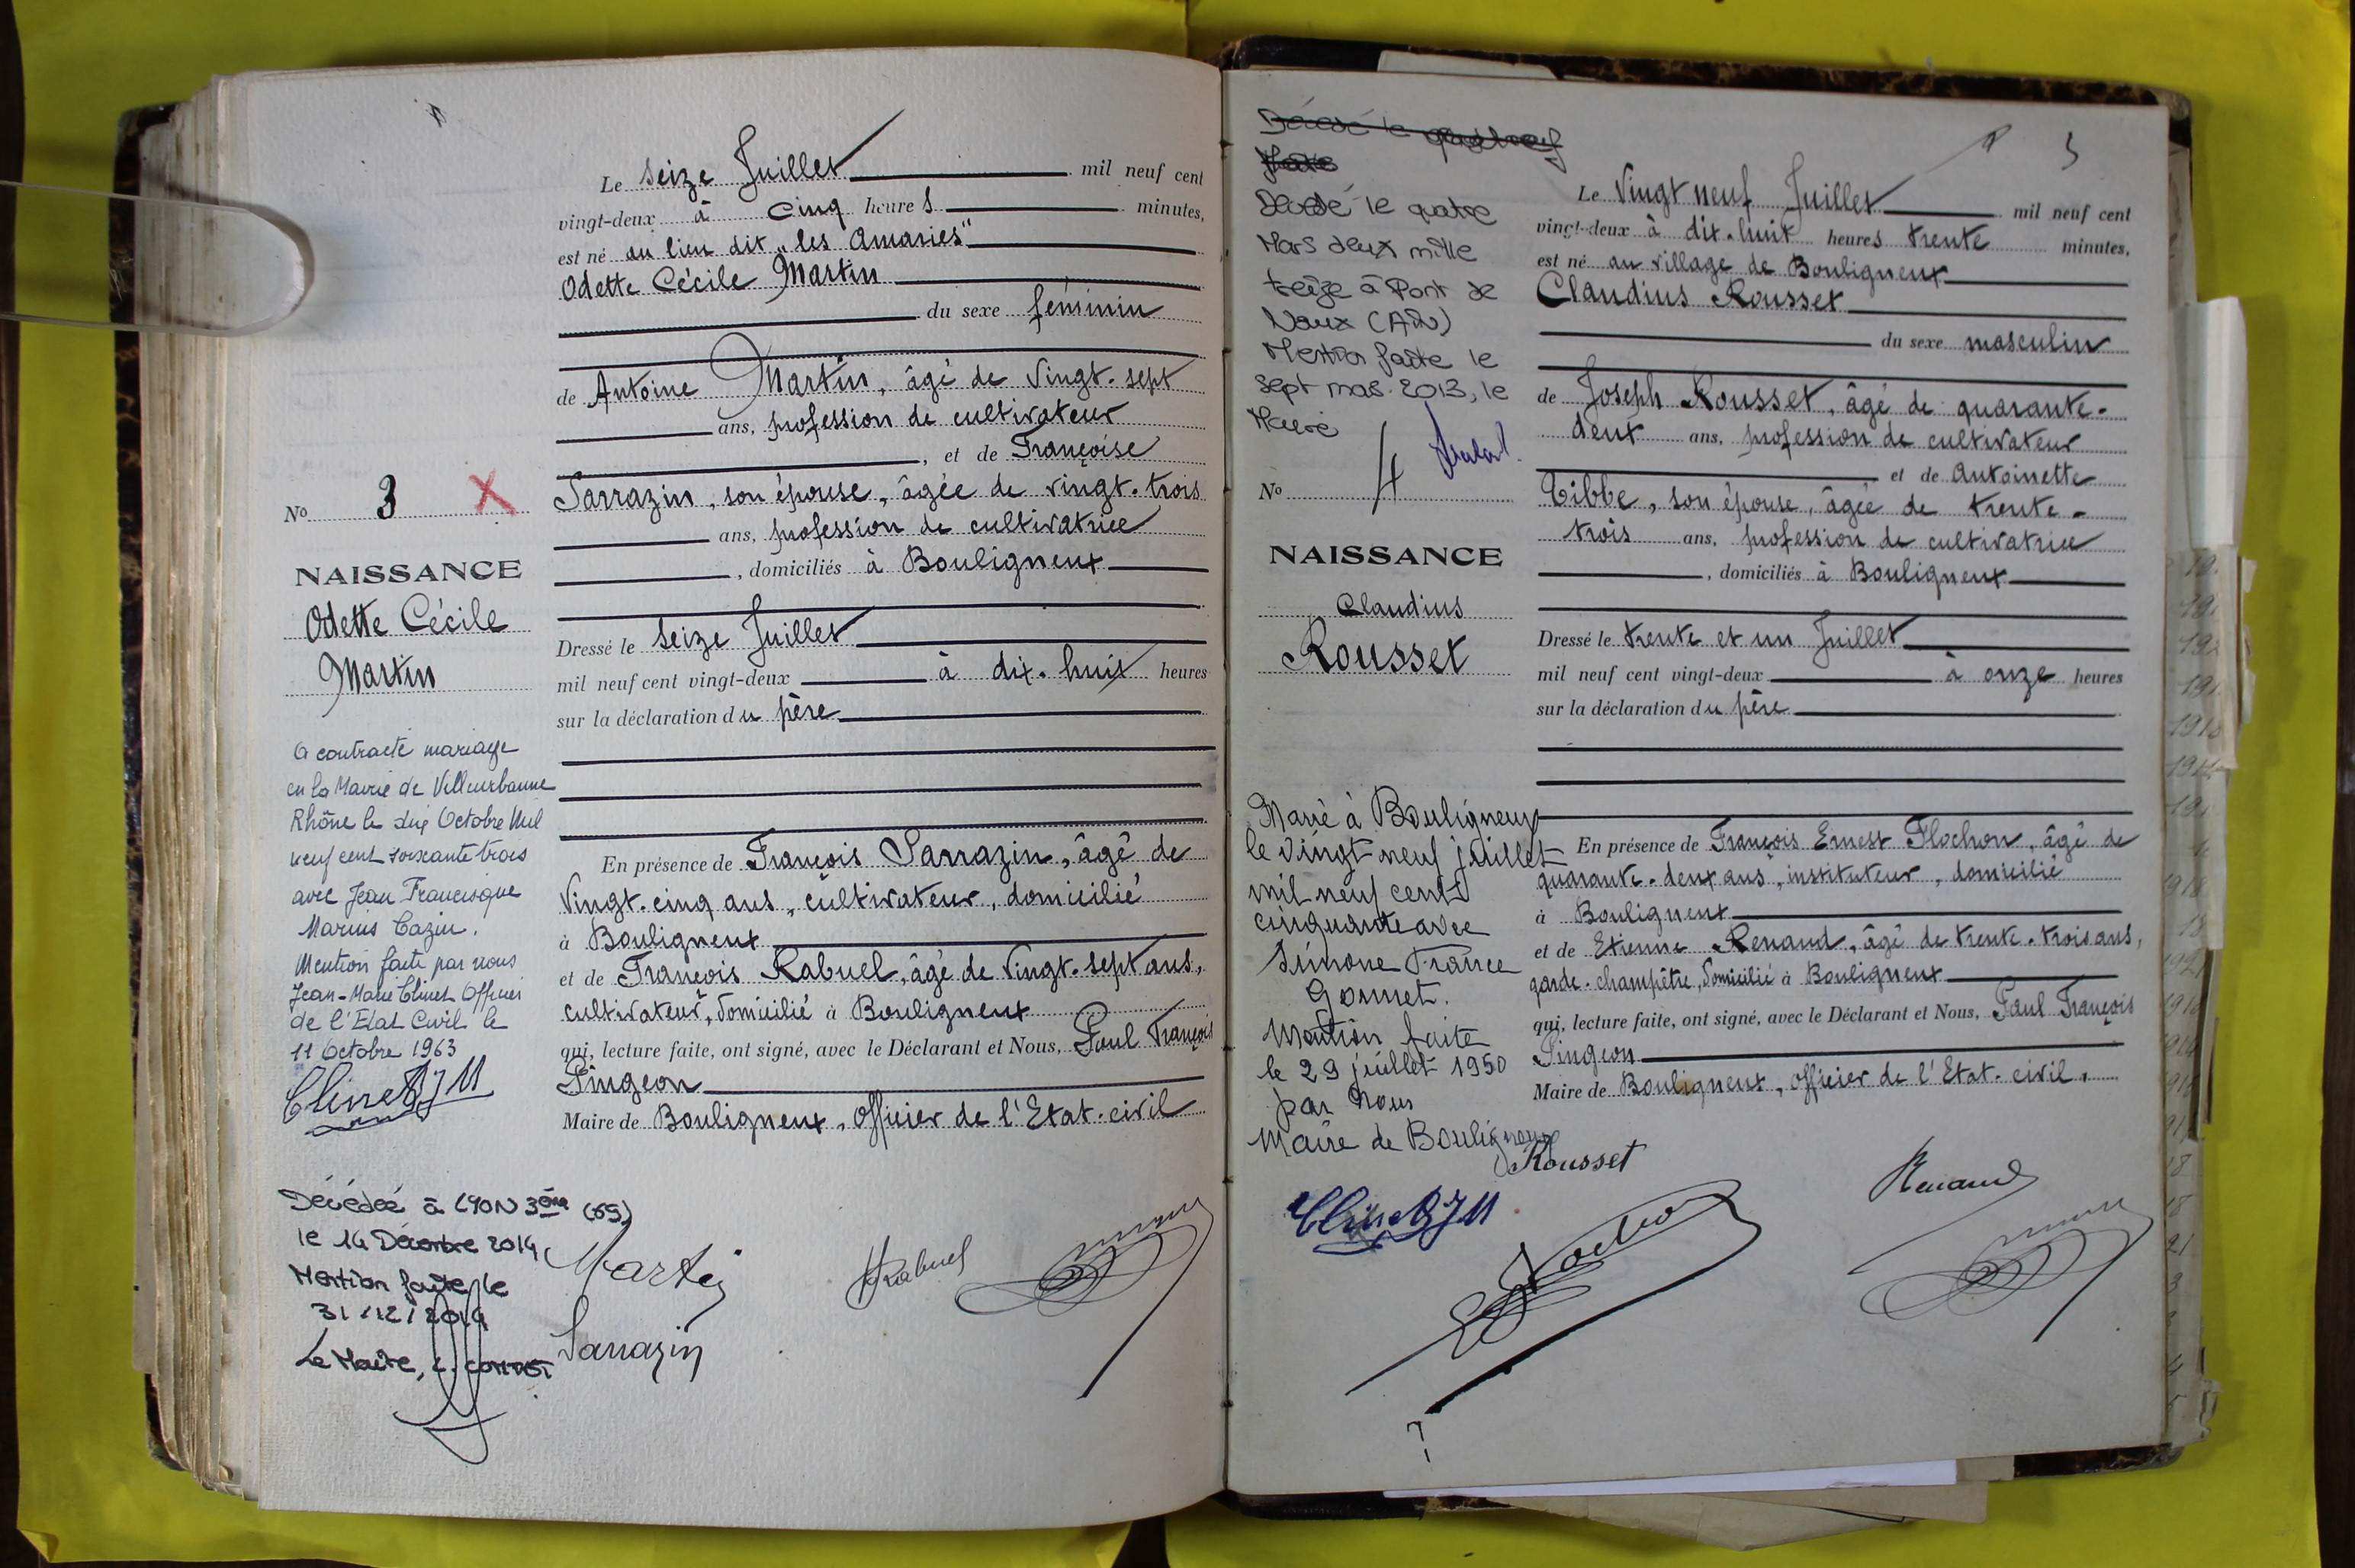 Le seize Juillet mil neuf cent
vingt-deux à cinq heures minutes,
est né au lieu dit "les Amaries"
Odette Cécile Martin
du sexe féminin
de Antoine Martin, âgé de vingt-sept
ans, profession de cultivateur
, et de Françoise
Sarrazin, son épouse, âgée de vingt-trois
ans, profession de cultivatrice
, domiciliés à Bouligneux
Dressé le seize Juillet
mil neuf cent vingt-deux à dix-huit heures
sur la déclaration du père
En présence de François Sarrazin, âgé de
vingt-cinq ans, cultivateur, domicilié
à Bouligneux
et de François Rabuel, âgé de vingt-sept ans,
cultivateur, domicilié à Bouligneux
qui, lecture faite, ont signé, avec le Déclarant et Nous, Paul François
Singeon
Maire de Bouligneux, officier de l'Etat-civil
No 3
NAISSANCE
Odette Cécile
Martin
A contracté mariage
en la Mairie de Villeurbanne
Rhône le dix Octobre Mil
neuf cent soixante trois
avec Jean Francisque
Marius Cazin.
Mention faite par nous
Jean-Marie Clinet Officier
de l'Etat Civil le
11 Octobre 1963
Clinet JM
Décédée à LYON 3ème (69)
le 14 Décembre 2014
Mention faite le
31/12/2014
Le Maire,
Martin
Rabuel
Sarrazin
Décédé le
Décédé le quatre
Mars deux mille
treize à Pont de
Vaux (AIN)
Mention faite le
sept mars 2013, le
Maire
No 4
NAISSANCE
Claudius
Rousset
Marié à Bouligneux
le vingt neuf juillet
mil neuf cent
cinquante avec
Simone France
Gonnet.
Mention faite
le 29 juillet 1950
par Nous
Maire de Bouligneux
Clinet JM
5
Le vingt neuf Juillet mil neuf cent
vingt-deux à dix-huit heures trente minutes,
est né au village de Bouligneux
Claudius Rousset
du sexe masculin
de Joseph Rousset, âgé de quarante-
deux ans, profession de cultivateur
et de Antoinette
Tibbe, son épouse, âgée de trente-
trois ans, profession de cultivatrice
, domiciliés à Bouligneux
Dressé le trente et un Juillet
mil neuf cent vingt-deux à onze heures
sur la déclaration du père
En présence de François Ernest Flochon, âgé de
quarante-deux ans, instituteur, domicilié
à Bouligneux
et de Etienne Renaud, âgé de trente-trois ans,
garde-champêtre, domicilié à Bouligneux
qui, lecture faite, ont signé, avec le Déclarant et Nous, Paul François
Singeon
Maire de Bouligneux, officier de l'Etat-civil,
Rousset
Renaud
?